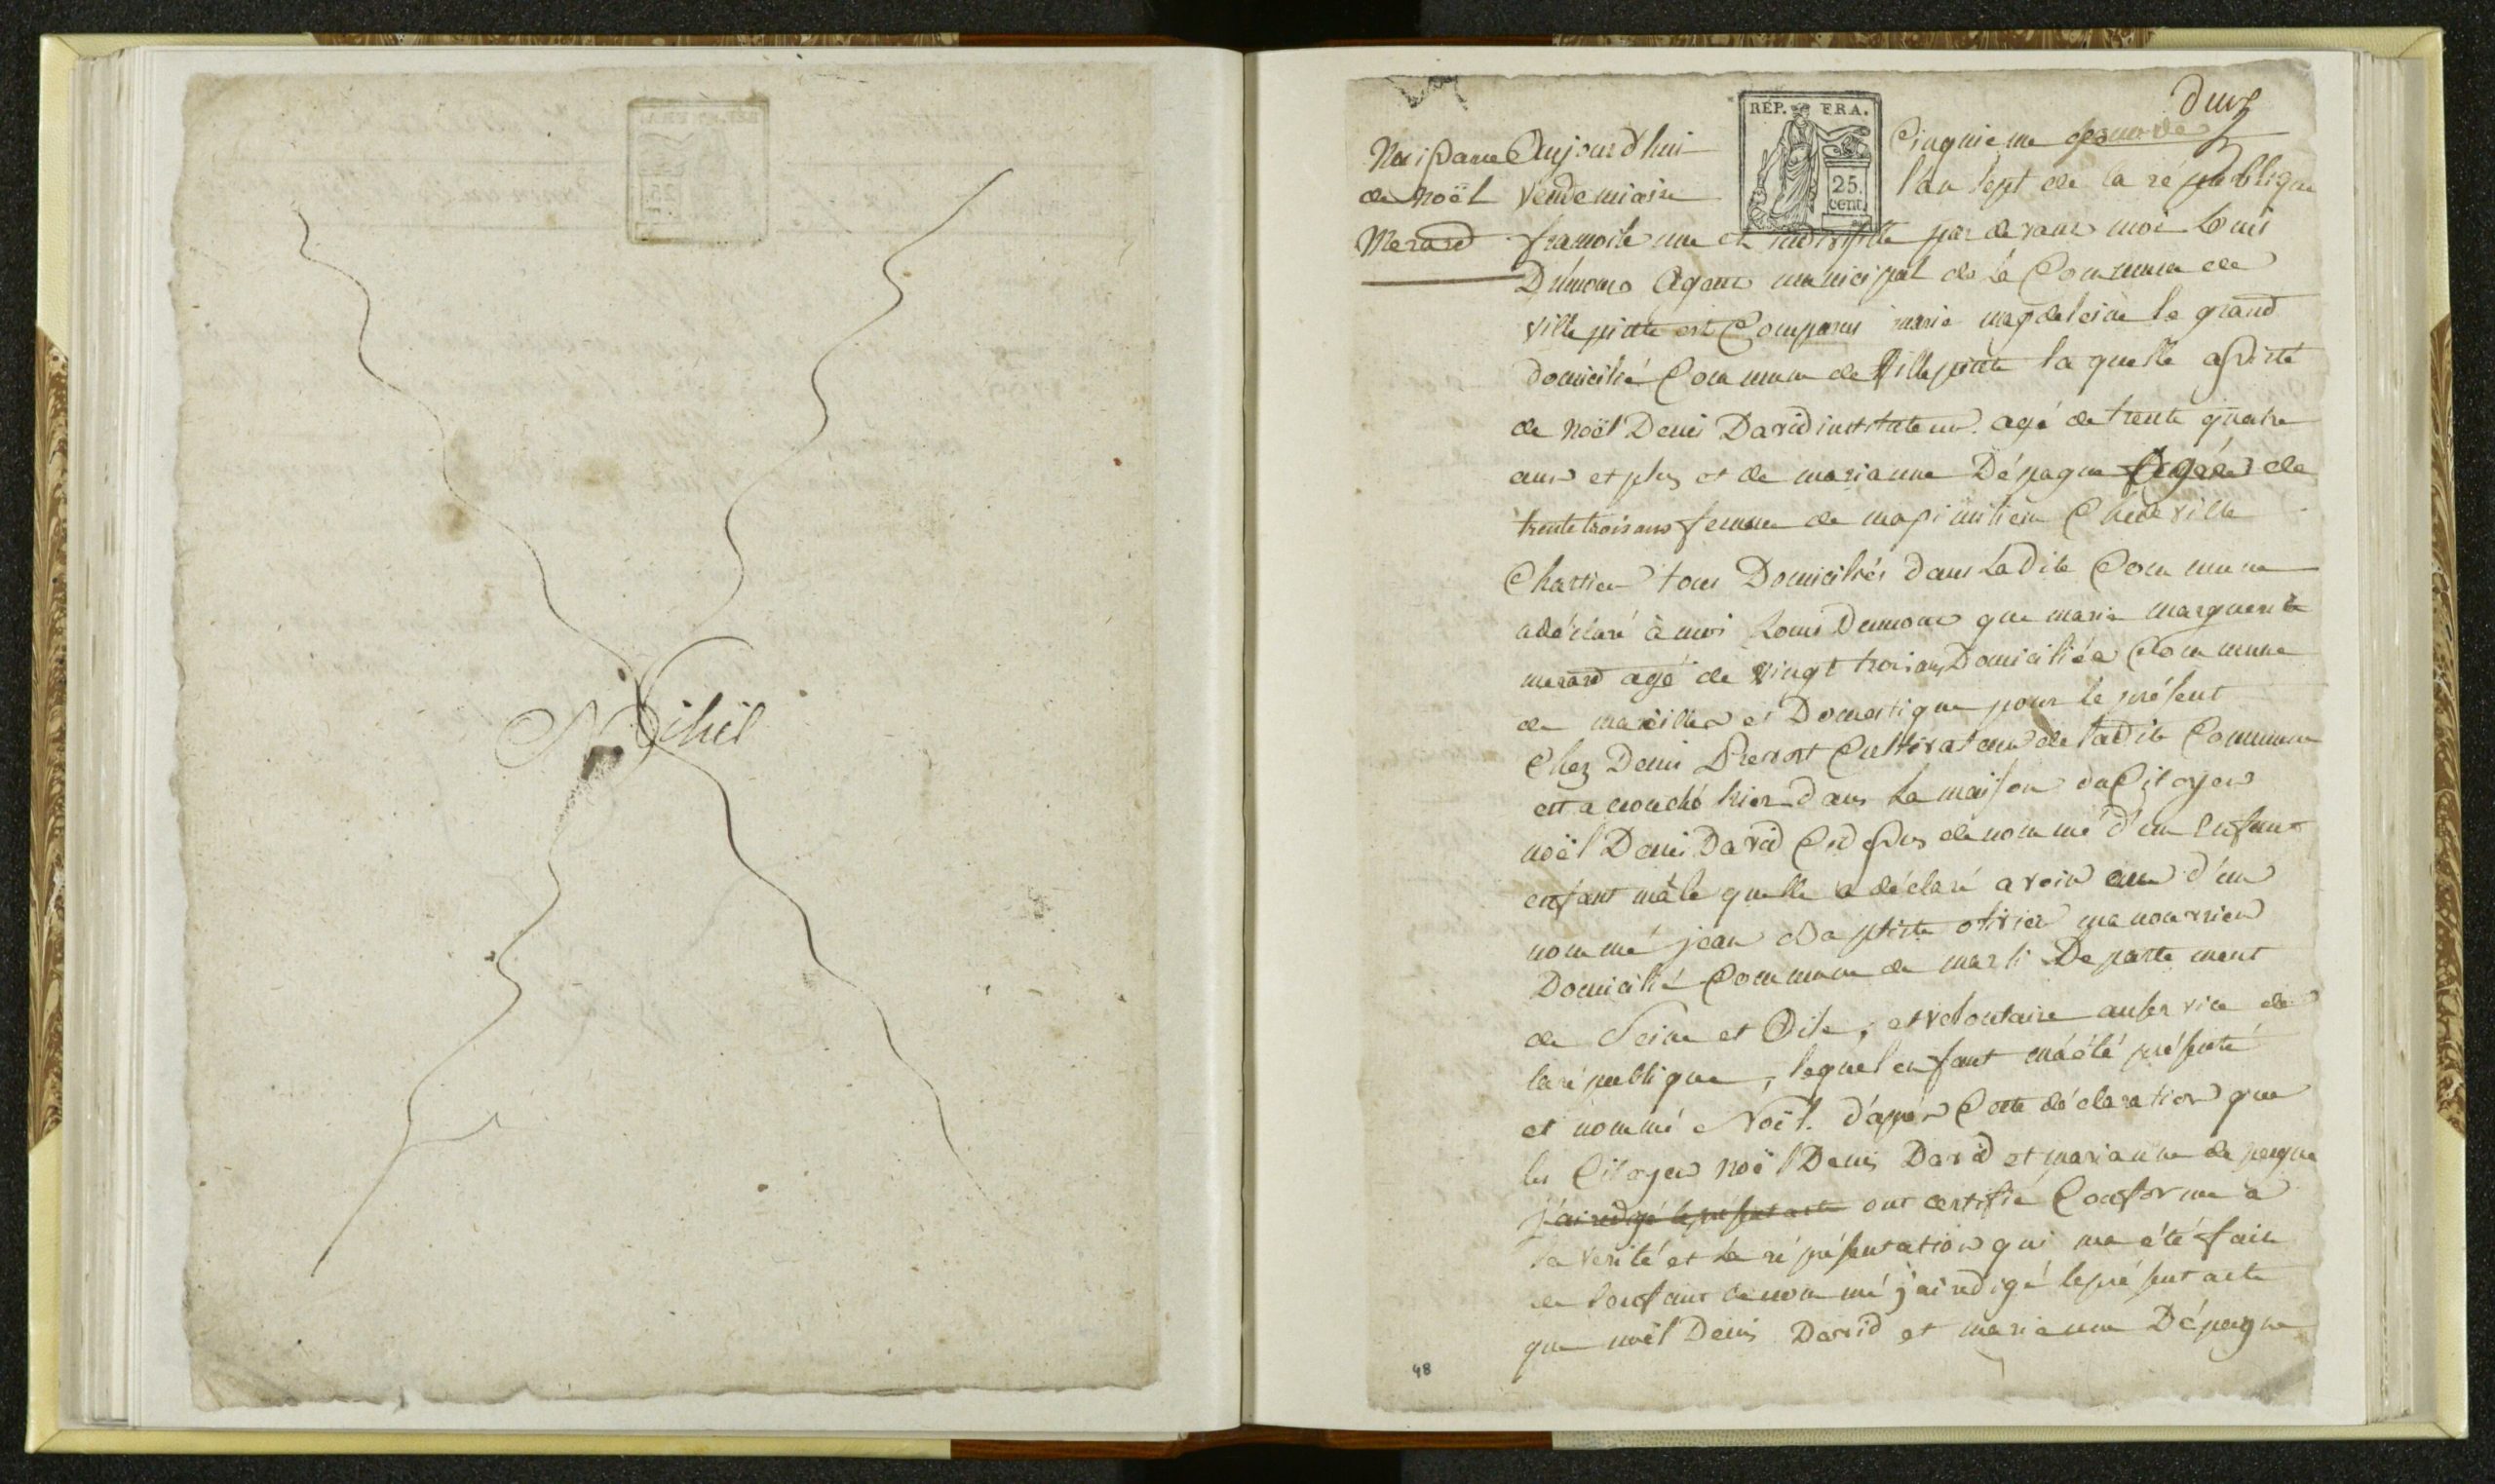 Nihil
deux
REP. FRA.
25.
cent.
Naissance
de Noël
Merard
Aujourdhui Cinquieme
Vendemiaire l'an sept de la republique
francoise une et indivisible par devant moi Louis
Dumont Agent municipal de la Commune de
Villepinte est Comparus marie magdeleine le grand
domicilié Commune de Villepinte la quelle assisté
de Noël Denis David instituteur agé de trente quatre
ans et plus et de marianne Dépagne agée de
trente trois ans femme de Chedeville
Chartier tous Domiciliés dans Ladite Commune
a déclaré à moi Louis Dumont que marie marguerite
merard agé de vingt trois ans Domiciliée Commune
de et Domestique pour le présent
Chez Denis Prevost Cultivateur de ladite Commune
est acouché hier dans la maison du Citoyen
noël Denis David Cidessus denommé d'un Enfant
enfant mâle quelle a déclaré avoir eue d'un
nommé jean Baptiste olivier manouvrier
Domicilié Commune de marli Departement
de Seine et Oise, et volontaire au service de
la république, lequel enfant m'a été présenté
et nommé Noël. d'après Cette déclaration que
les Citoyen Noël Denis David et marianne depagne
j'ai redigé le présent acte ont certifié Conforme a
la verité et la réprésentation qui ma été faite
de lenfant denommé j'ai redigé le présent acte
que noël Denis David et marianne Dépagne
48